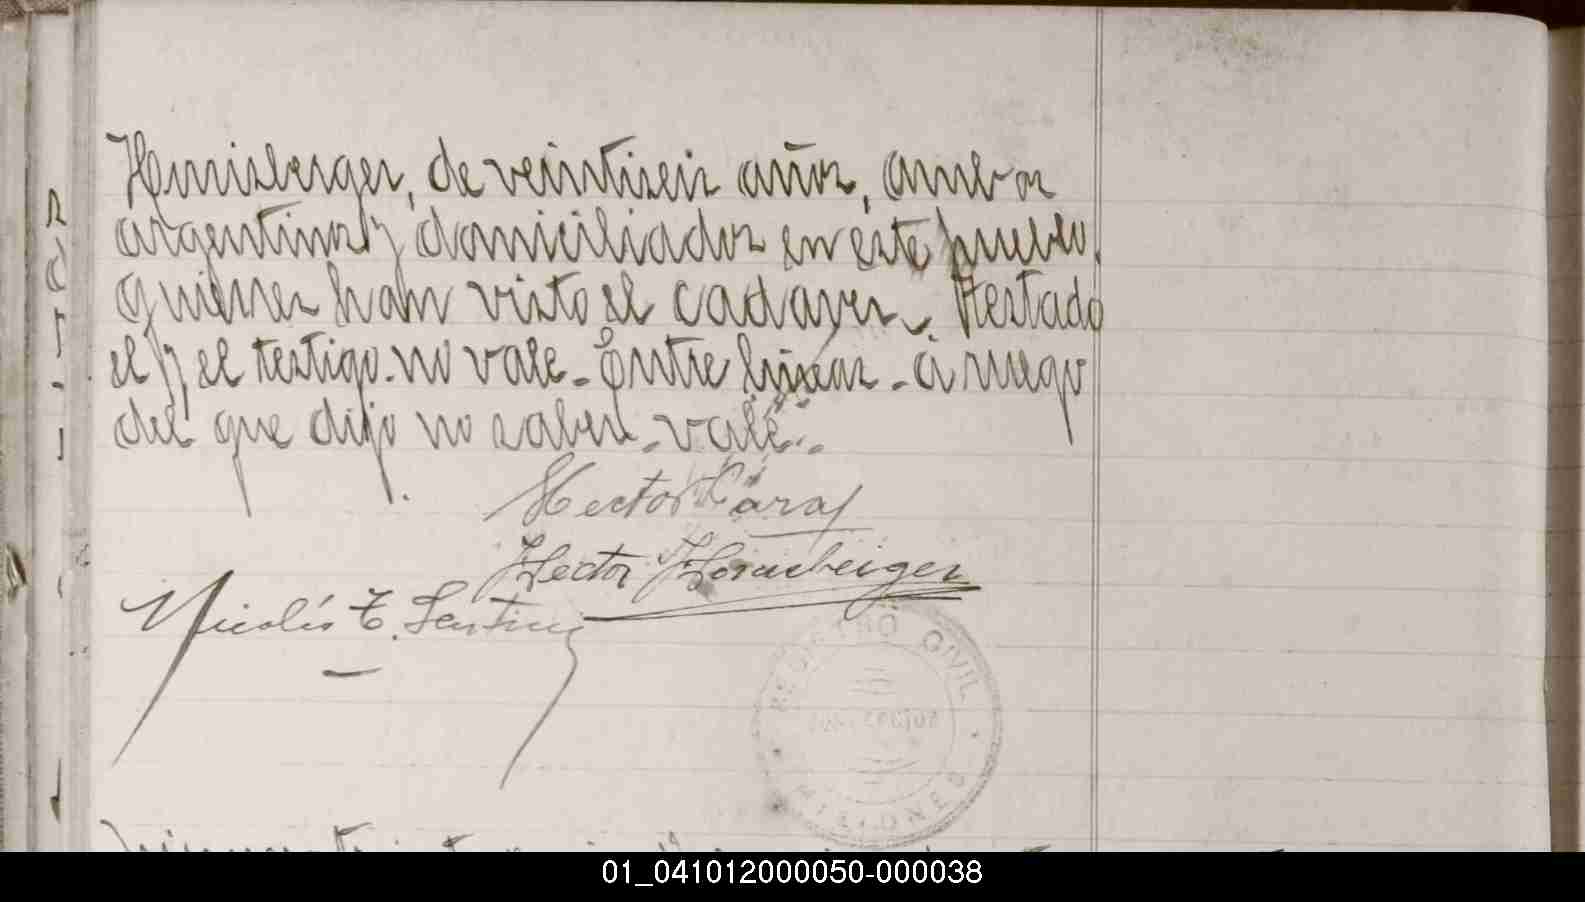 Hornisberger, de veintiseis años, ambos
argentinos y domiciliados en este pueblo,
quienes han visto el cadaver. Testado
el y el testigo. no vale. Entre lineas. á ruego
del que dijo no saber. vale.
Hector
Hector Hornisberger
Nicolás
REGISTRO CIVIL
MISIONES
01_041012000050-000038